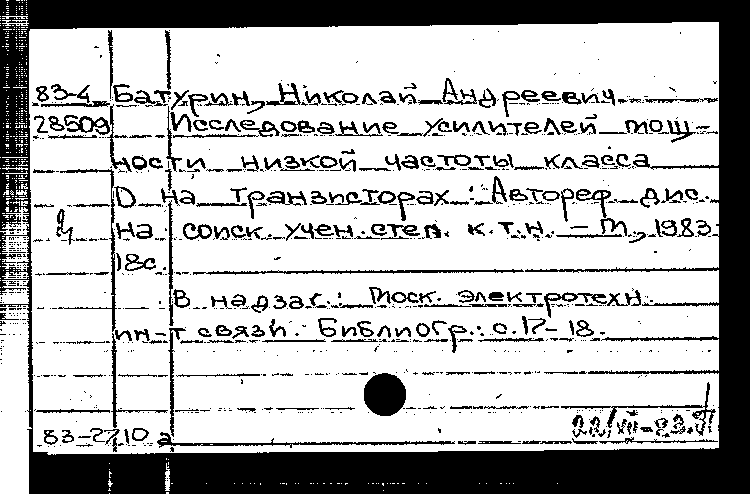 83-4 Батурин, Николай Андреевич.
28509 Исследование усилителей мощ-
ности низкой частоты класса
D на транзисторах : Автореф. дис.
на соиск. учен. степ. к. т. н. - М., 1983
18с.
В надзаг.: Моск. электротехн.
ин-т связи. Библиогр.: с. 17-18.
83-2710 а
22/VII-83.